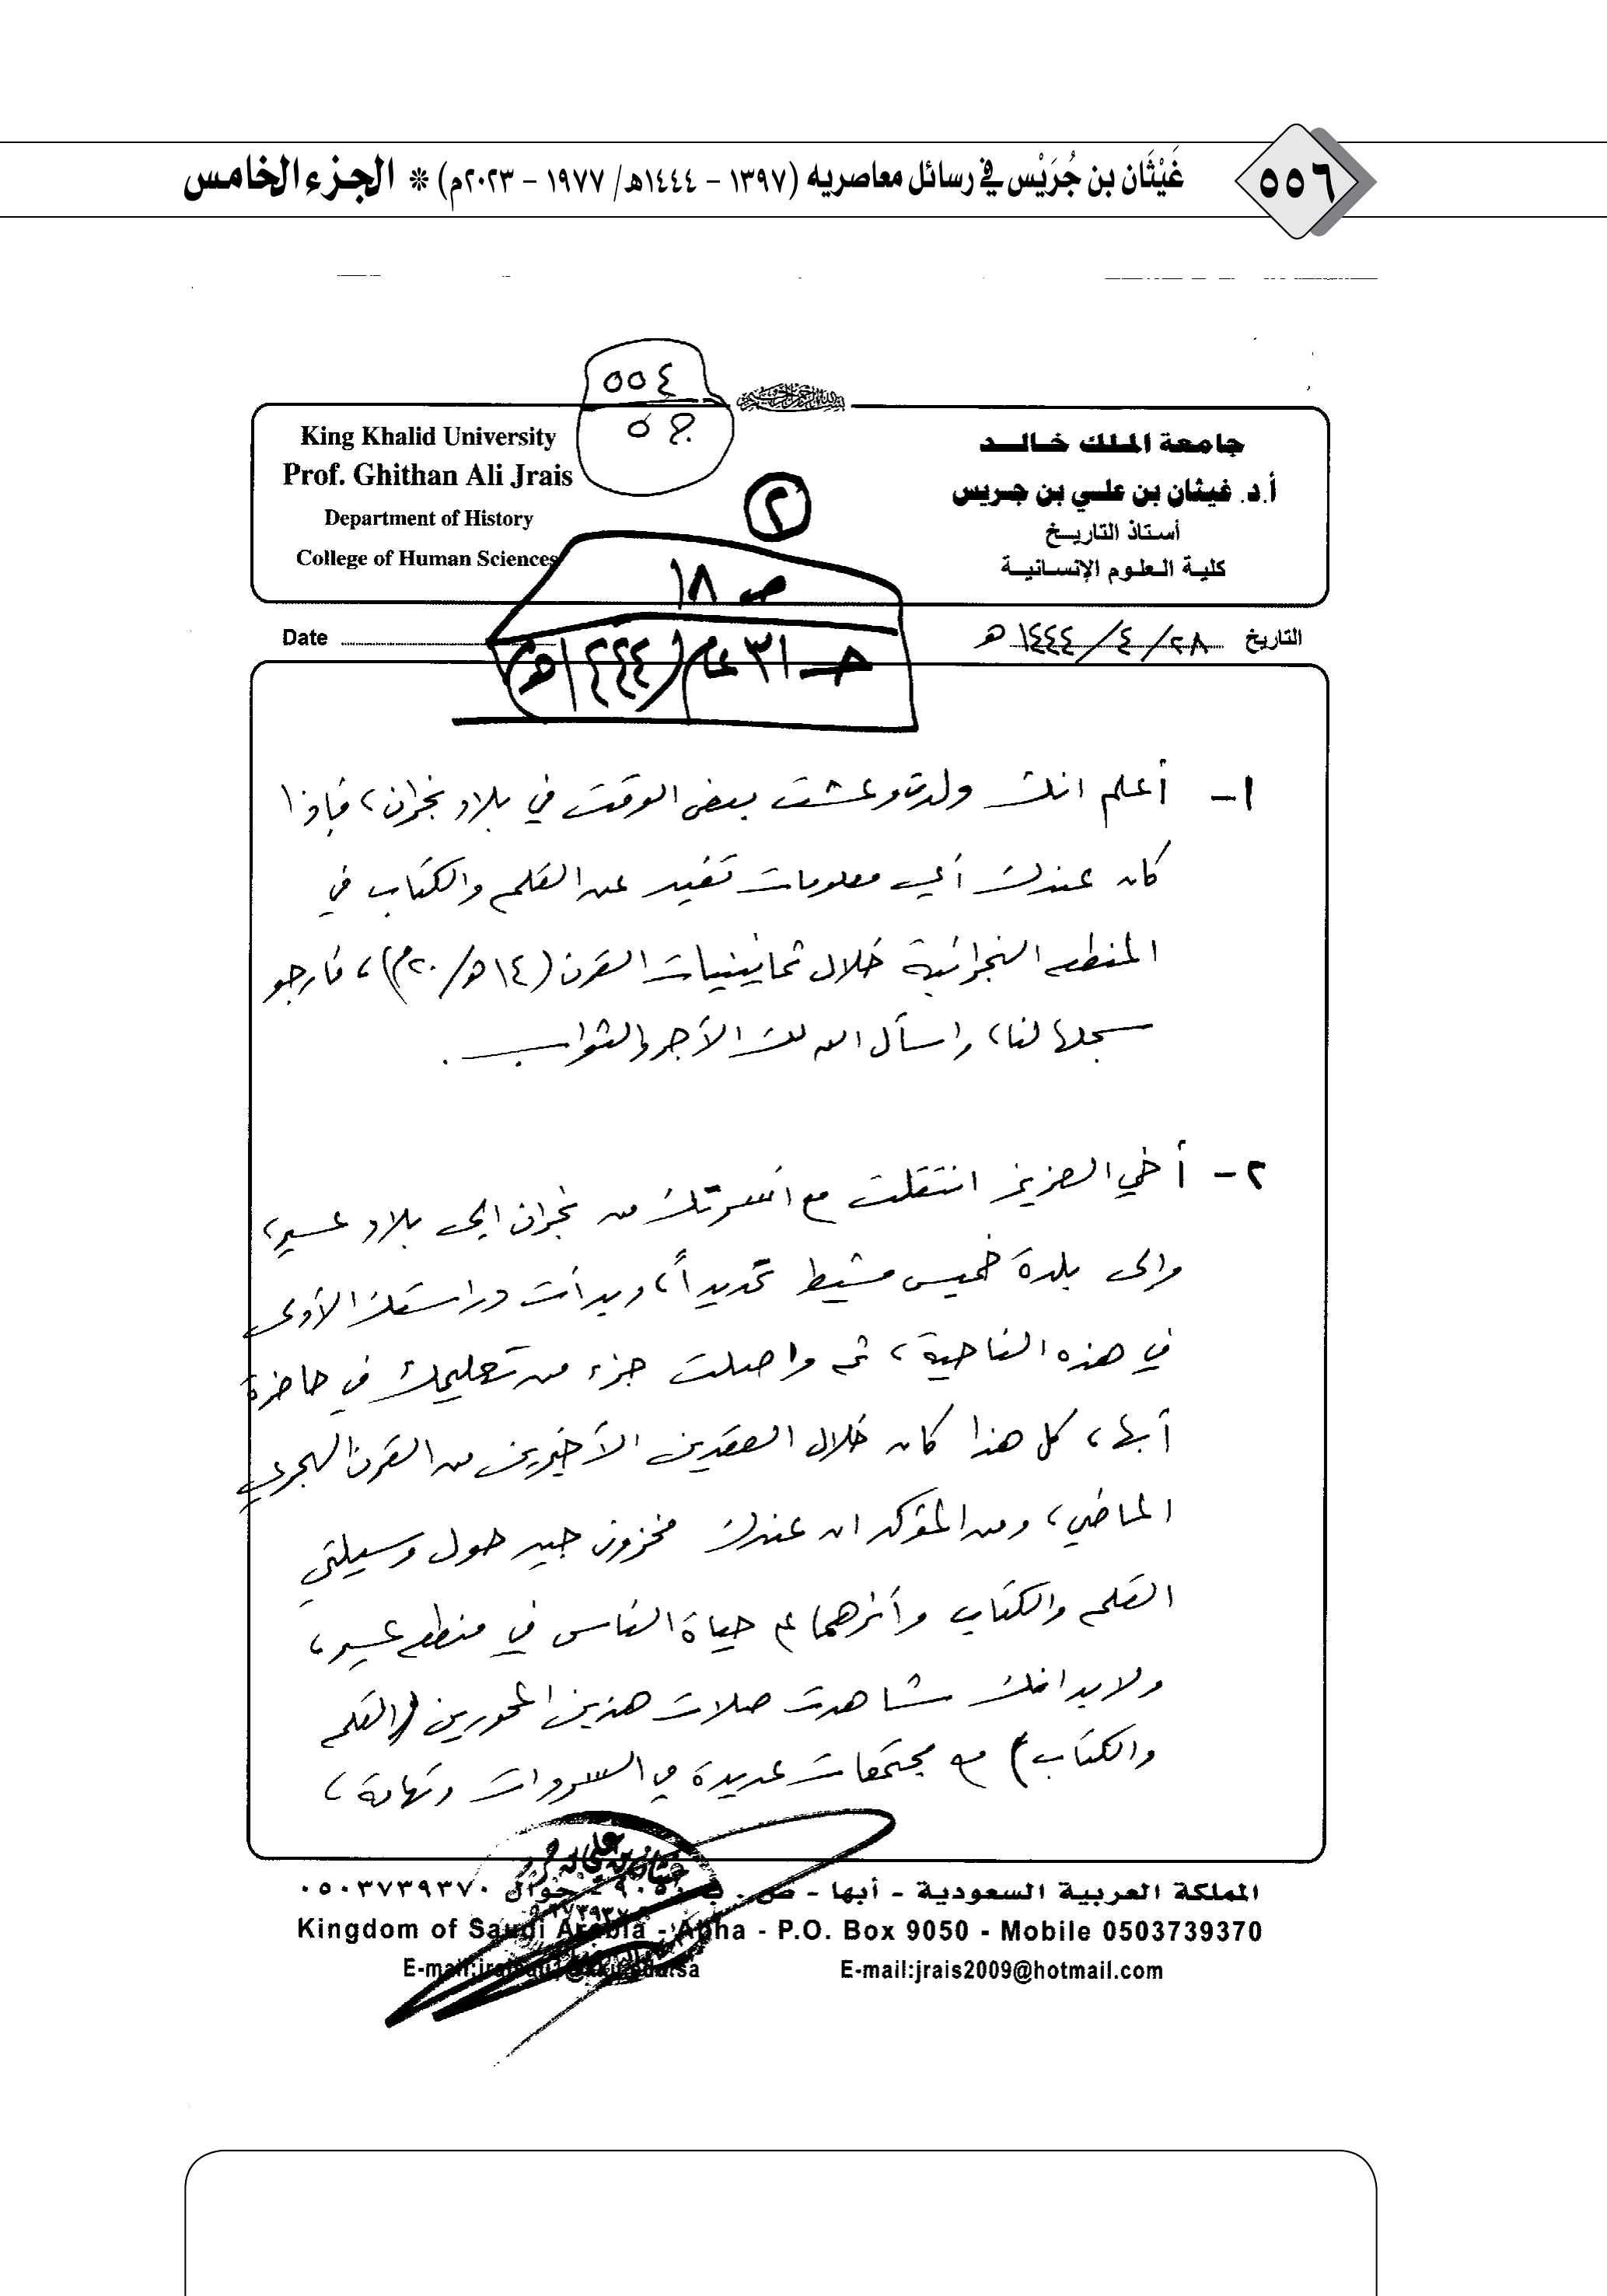 ٥٥٦
غَيْثَان بن جُرَيْس في رسائل معاصريه (١٣٩٧ – ١٤٤٤هـ/ ١٩٧٧ – ٢٠٢٣م) * الجزء الخامس
٥٥٤
ج ٥
King Khalid University
Prof. Ghithan Ali Jrais
Department of History
College of Human Sciences
جامعة الملك خالد
أ.د. غيثان بن علي بن جريس
أستاذ التاريخ
كلية العلوم الإنسانية
٢
ص ١٨
حـ ٣١ عام (١٤٤٤هـ)
Date
التاريخ ٢٨/ ٤/ ١٤٤٤ هـ
١- أعلم انك ولدت وعشت بعض الوقت في بلاد نجران، فإذا
كان عندك أي معلومات تفيد عن القلم والكتاب في
المنطقة النجرانية خلال ثمانينيات القرن (١٤هـ/٢٠م)، فارجو
سجلها لنا، واسأل الله لك الأجر والثواب.
٢- أخي العزيز انتقلت مع اسرتك من نجران إلى بلاد عسير،
وإلى بلدة خميس مشيط تحديداً، وبدأت دراستك الأولى
في هذه الناحية، ثم واصلت جزء من تعليمك في حاضرة
أبها، كل هذا كان خلال العقدين الأخيرين من القرن الهجري
الماضي، ومن المؤكد ان عندك مخزون جيد حول وسيلتي
القلم والكتاب وأثرهما على حياة الناس في منطقة عسير،
ولابد انك شاهدت صلات هذين المحورين (القلم
والكتاب) مع مجتمعات عديدة في السروات وتهامة،
المملكة العربية السعودية - أبها - ص.ب ٩٠٥٠ - جوال ٠٥٠٣٧٣٩٣٧٠
Kingdom of Saudi Arabia - Abha - P.O. Box 9050 - Mobile 0503739370
E-mail:jrais2009@hotmail.com